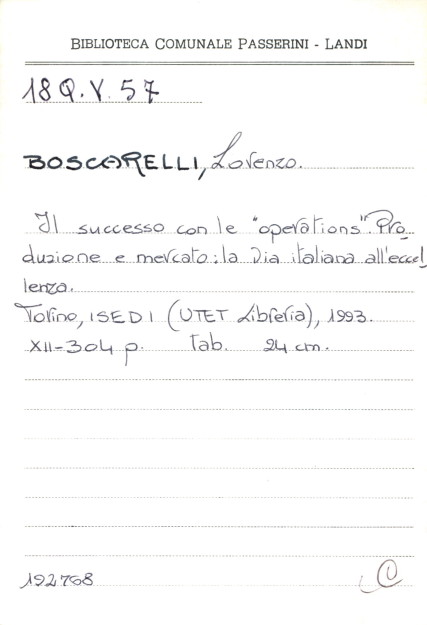 BIBLIOTECA COMUNALE PASSERINI - LANDI
18 Q.V. 57
BOSCARELLI, Lorenzo.
Il successo con le "operations". Pro_
duzione e mercato: la via italiana all'eccel_
lenza.
Torino, ISEDI (UTET Libreria), 1993.
XII-304 p. tab. 24 cm.
192768
C